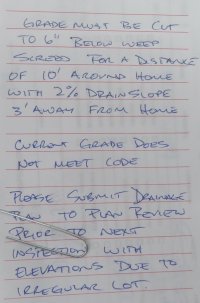 GRADE MUST BE CUT
TO 6" BELOW WEEP
SCREED FOR A DISTANCE
OF 10' AROUND HOME
WITH 2% DRAINSLOPE
3' AWAY FROM HOME
CURRENT GRADE DOES
NOT MEET CODE
PLEASE SUBMIT DRAINAGE
PLAN TO PLAN REVIEW
PRIOR TO NEXT
INSPECTION WITH
ELEVATIONS DUE TO
IRREGULAR LOT.